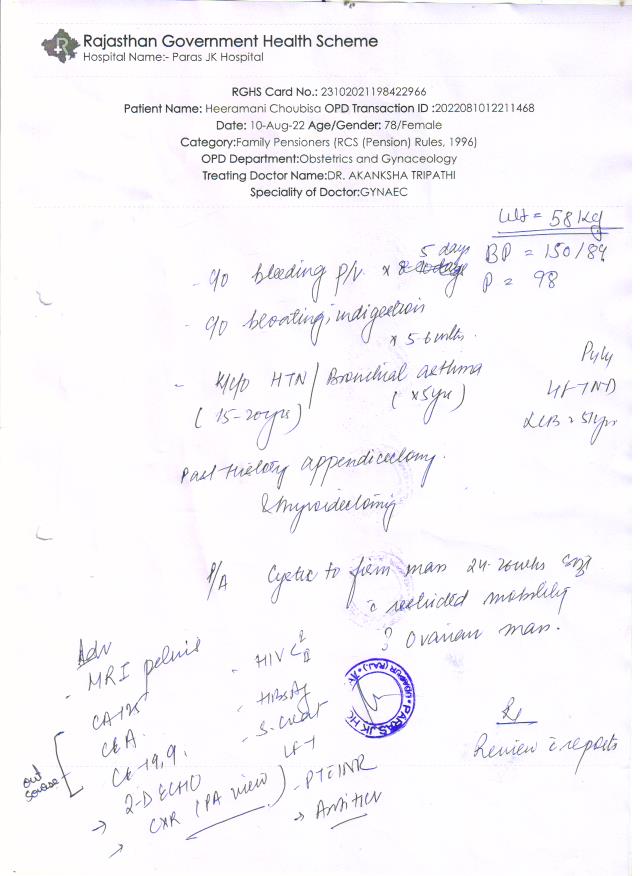 Rajasthan Government Health Scheme
Hospital Name:- Paras JK Hospital
RGHS Card No.: 23102021198422966
Patient Name: Heeramani Choubisa OPD Transaction ID :2022081012211468
Date: 10-Aug-22 Age/Gender: 78/Female
Category:Family Pensioners (RCS (Pension) Rules, 1996)
OPD Department:Obstetrics and Gynaecology
Treating Doctor Name:DR. AKANKSHA TRIPATHI
Speciality of Doctor:GYNAEC
Wt = 58 Kg
BP = 150/84
P = 98
- c/o bleeding P/V x 5 days
- c/o bloating, indigestion
x 5-6 mths.
- K/c/o HTN / Bronchial asthma
(15-20 yrs) (x 5 yrs)
LCB = 51 yrs
Past History appendicectomy
& thyroidectomy
P/A Cystic to firm mass 24- wks size
c restricted mobility
? Ovarian mass.
Adv
- MRI pelvis
CA125
CEA
CA-19.9.
out source
→ 2-D ECHO
→ CXR (PA view)
- HIV
- HBsAg
- S. Creat
LFT
- PT-INR
→ Anti HCV
PARAS JK HOSPITAL
UDAIPUR (RAJ.)
Rx
Review c reports